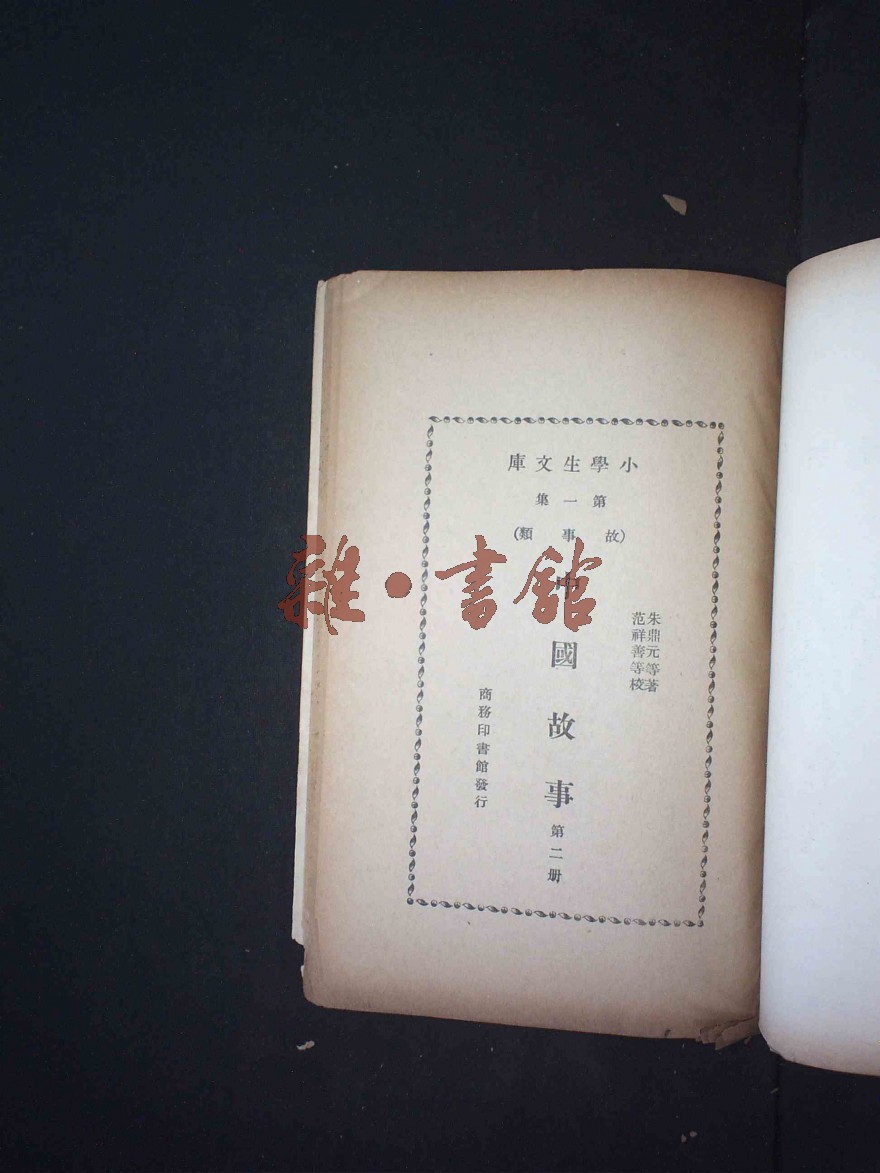 小學生文庫
第一集
(故事類)
朱鼎元等著
范祥善等校
中國故事 第二册
商務印書館發行
雜·書館